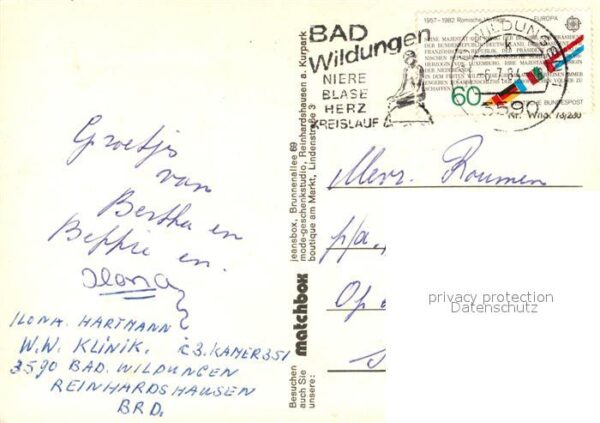 Groetjes
van
Bertha en
Beppie en.
Ilona
ILONA. HARTMANN
W.W. KLINIK. C3. KAMER 351
3590 BAD. WILDUNGEN
REINHARDSHAUSEN
BRD.
Besuchen
auch Sie
unsere:
matchbox
jeansbox, Brunnenallee 69
mode-geschenkstudio, Reinhardshausen a. Kurpark
boutique am Markt, Lindenstraße 3
BAD
Wildungen
NIERE
BLASE
HERZ
KREISLAUF
WILDUNGEN
k
3590
1957-1982 Römische
EUROPA
60
BUNDESPOST
Mevr. Roumen
p/a,
Op d
privacy protection
Datenschutz